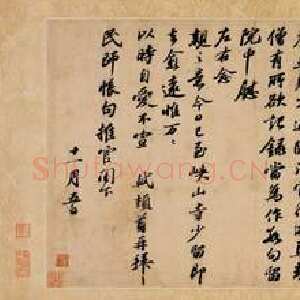 僧有所欲記錄當為作數句留
院中慰
左右念
親之意今日已至峽山寺少留即
去愈遠惟万万
以時自愛不宣 軾頓首再拜
民師帳句推官閣下
十一月五日
Shufawang.CN